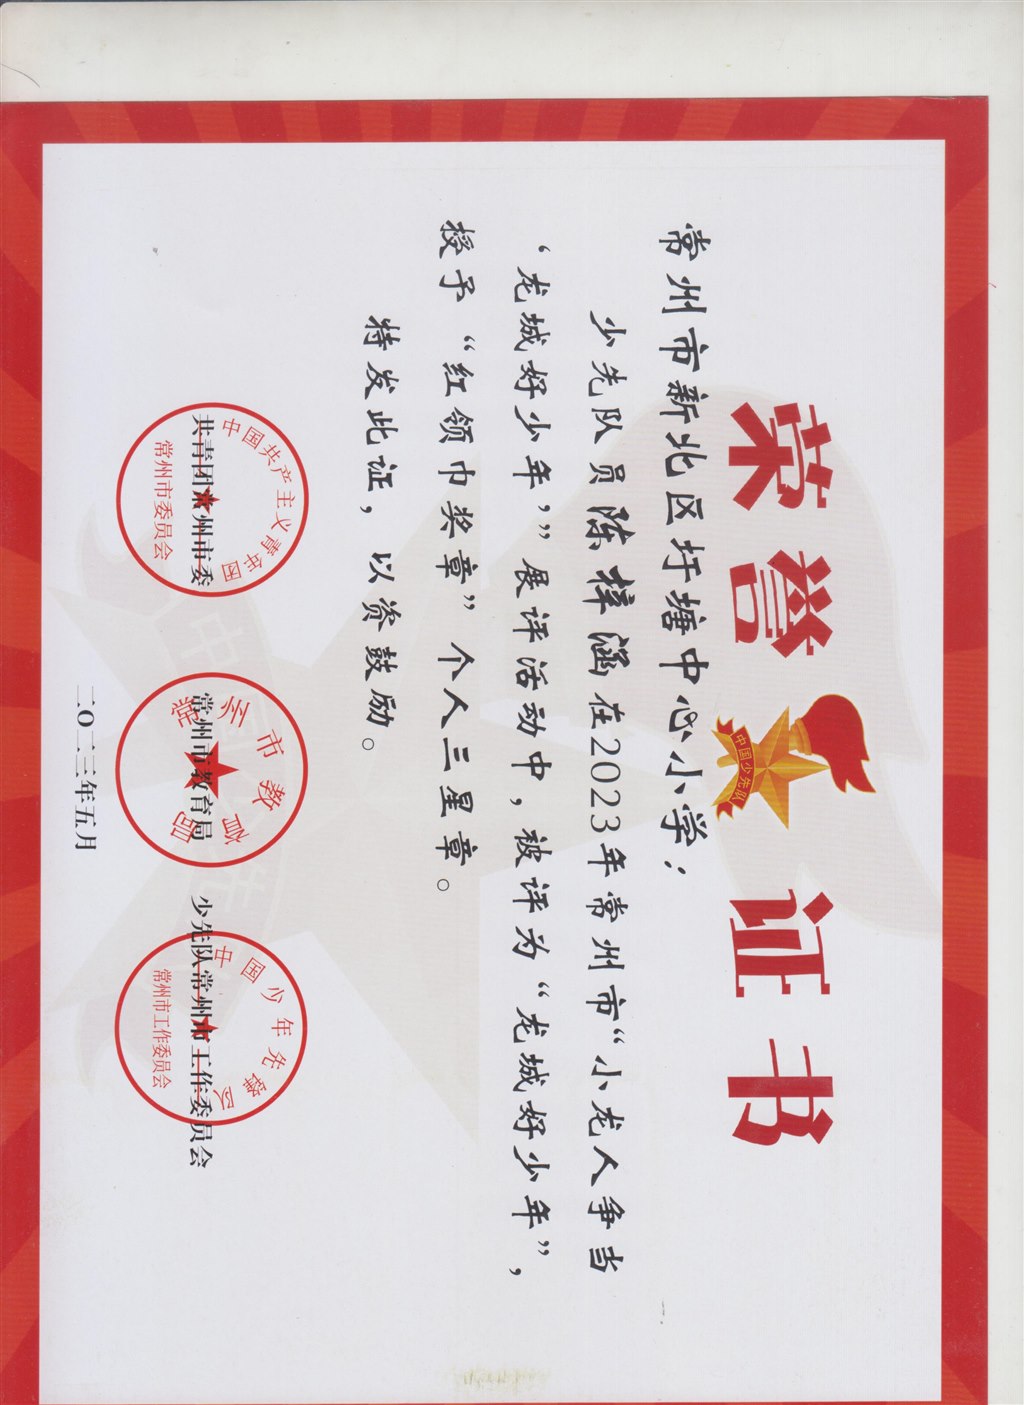 荣誉证书
中国少先队
常州市新北区圩塘中心小学：
少先队员陈梓涵在2023年常州市“小龙人争当
‘龙城好少年’”展评活动中，被评为“龙城好少年”，
授予“红领巾奖章”个人三星章。
特发此证，以资鼓励。
共青团常州市委
中国共产主义青年团
常州市委员会
常州市教育局
常州市教育局
少先队常州市工作委员会
中国少年先锋队
常州市工作委员会
二〇二三年五月